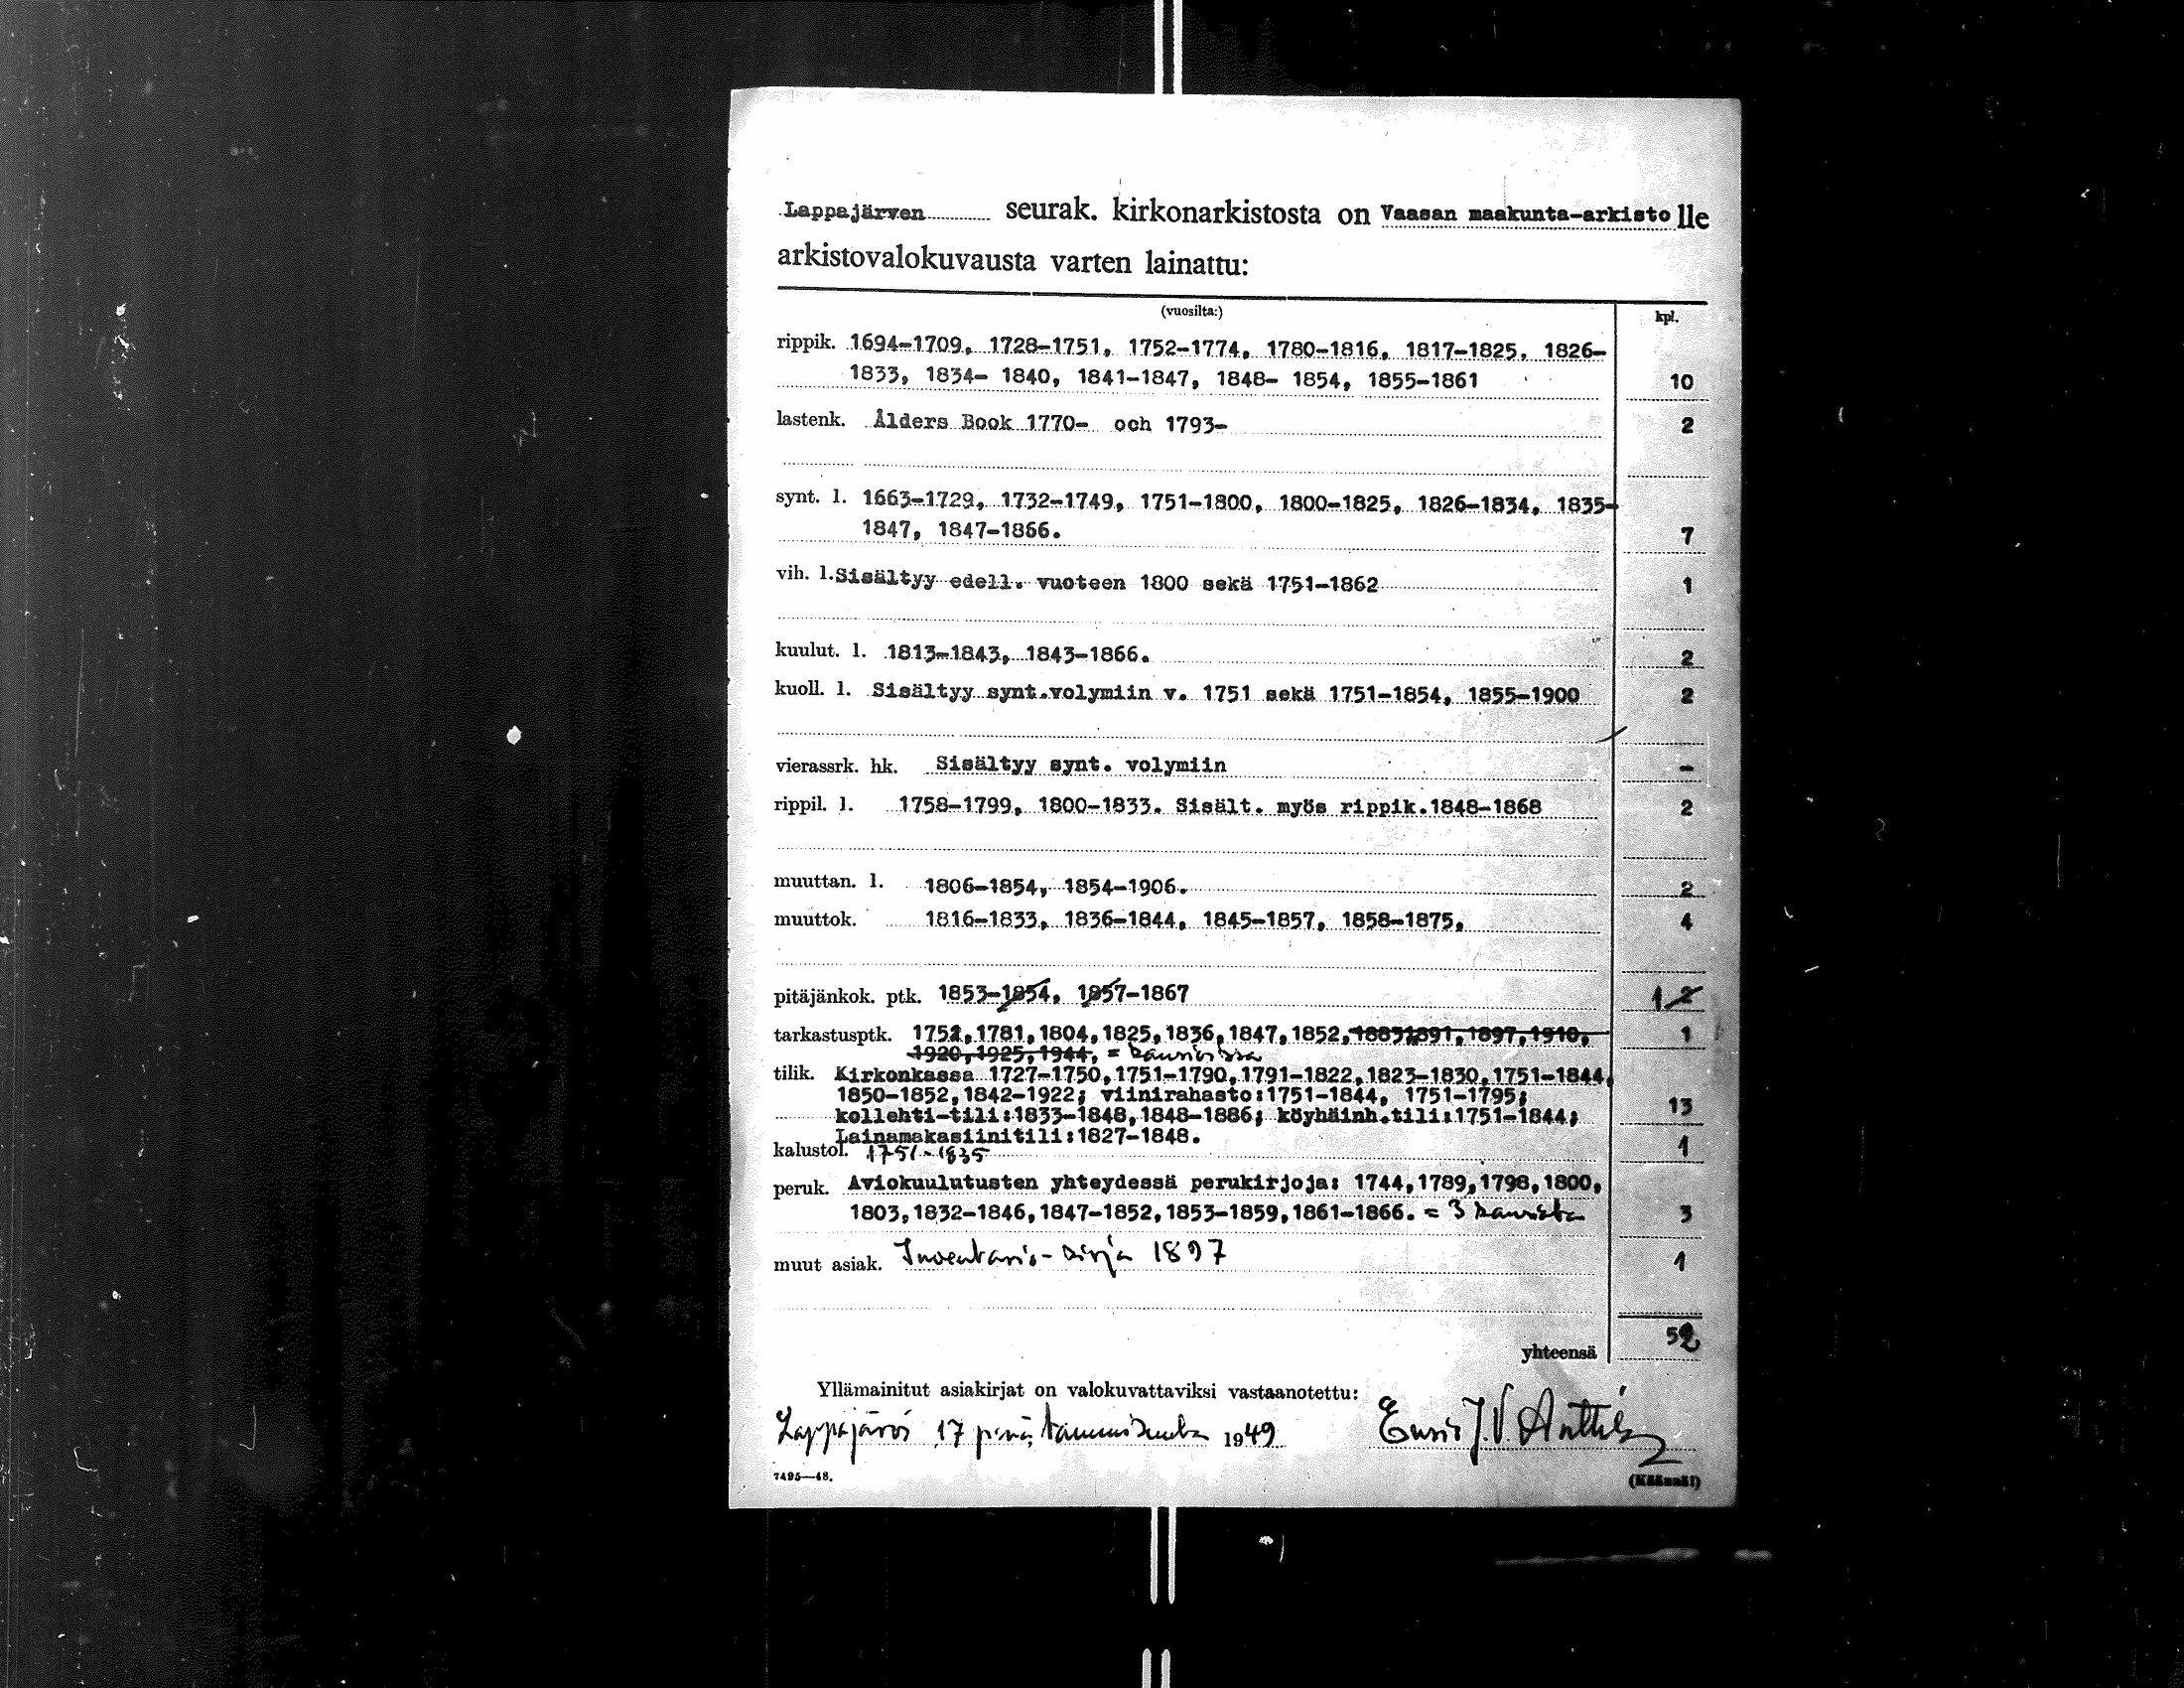 Lappajärven seurak. kirkonarkistosta on Vaasan maakunta-arkisto lle
arkistovalokuvausta varten lainattu:
(vuosilta:) kpl.
rippik. 1694-1709, 1728-1751, 1752-1774, 1780-1816, 1817-1825, 1826-
1833, 1834- 1840, 1841-1847, 1848- 1854, 1855-1861 10
lastenk. Ålders Book 1770- och 1793- 2
synt. l. 1663-1729, 1732-1749, 1751-1800, 1800-1825, 1826-1834, 1835-
1847, 1847-1866. 7
vih. l. Sisältyy edell. vuoteen 1800 sekä 1751-1862 1
kuulut. l. 1813-1843, 1843-1866. 2
kuoll. l. Sisältyy synt.volymiin v. 1751 sekä 1751-1854, 1855-1900 2
vierassrk. hk. Sisältyy synt. volymiin -
rippil. l. 1758-1799, 1800-1833. Sisält. myös rippik.1848-1868 2
muuttan. l. 1806-1854, 1854-1906. 2
muuttok. 1816-1833, 1836-1844, 1845-1857, 1858-1875, 4
pitäjänkok. ptk. 1853-1854, 1857-1867 1 2
tarkastusptk. 1752,1781,1804,1825,1836,1847,1852,1883,1891,1897,1910, 1
1920,1925,1944, = kansiossa
tilik. Kirkonkassa 1727-1750,1751-1790,1791-1822,1823-1830,1751-1844,
1850-1852,1842-1922; viinirahasto:1751-1844, 1751-1795;
kollehti-tili:1833-1848,1848-1886; köyhäinh.tili:1751-1844; 13
Lainamakasiinitili:1827-1848.
kalustol. 1751-1835 1
peruk. Aviokuulutusten yhteydessä perukirjoja: 1744,1789,1798,1800,
1803,1832-1846,1847-1852,1853-1859,1861-1866. = 3 kansiota 3
muut asiak. Inventario-kirja 1897 1
yhteensä 52
Yllämainitut asiakirjat on valokuvattaviksi vastaanotettu:
Lappajärvi 17 p:nä tammikuuta 1949 J.V. Anttila
7495—48.
(Käännä!)